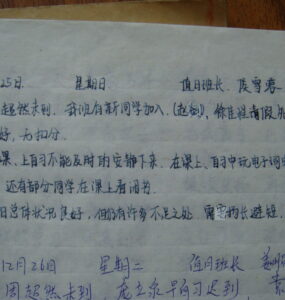 25日 星期日 值月班长
超然未到。我班有新同学加入(赵剑)。徐佳 请假
好,无扣分
课、上自习不能及时的安静下来。在课上、自习中玩电子词
还有部分同学在课上看闲书
日总体状况良好,但仍有许多不足之处。需 扬长避短
12月26日 星期二 值月班长
周超然未到 早自习迟到